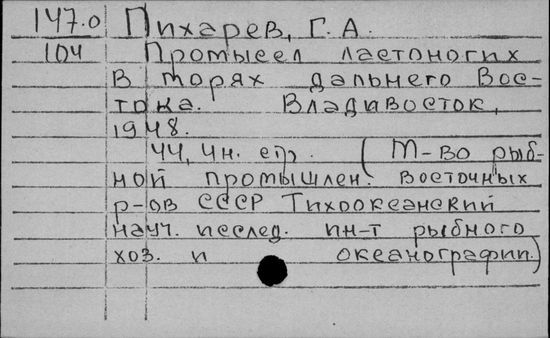 147.0 Пихарев, Г. А.
104 Промысел ластоногих
в морях дальнего Вос-
тока. Владивосток,
1948.
44, 4н. стр. (М-во рыб-
ной промышлен. восточных
р-ов СССР Тихоокеанский
науч. исслед. ин-т рыбного
хоз. и океанографии.)